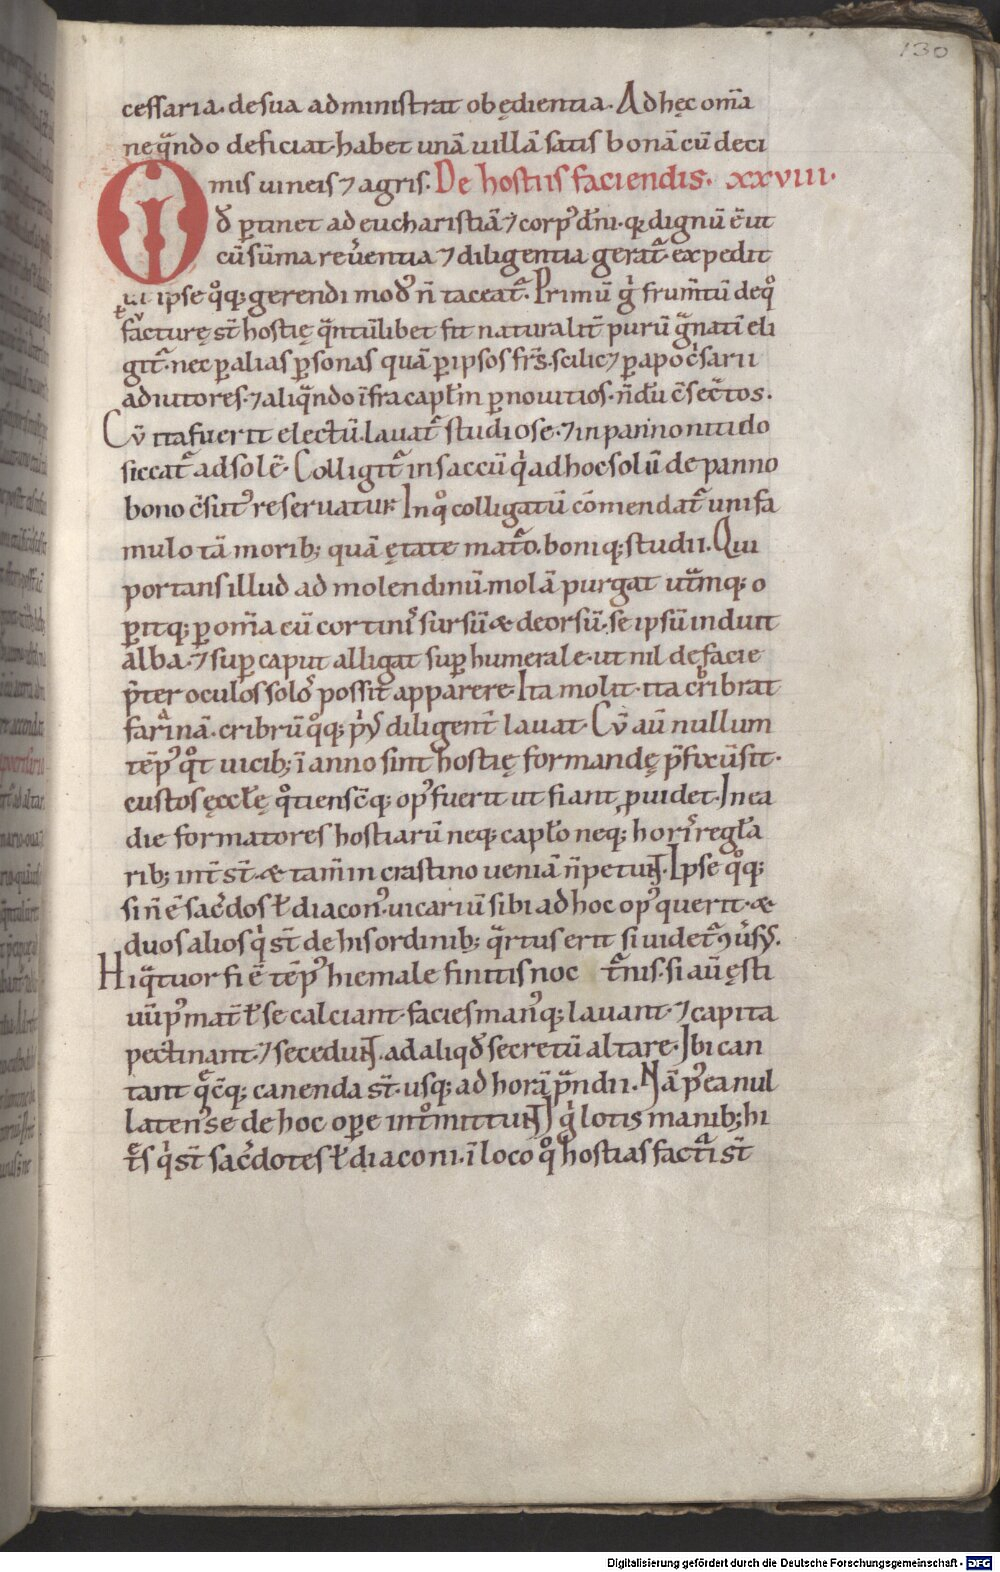 130
cessaria. desua administrat obędientia. Adhęc om̄a
ne q̄ndo deficiat. habet unā uillā satis bonā cū deci
mis uineis ⁊ agris. De hostiis faciendis. xxviii.
Qd ꝑtinet ad eucharistiā ⁊ corpꝰ dn̄i. qꝫ dignū ē ut
cū sūma reuerentia ⁊ diligentia gerat̄. expedit
ut ipse qͦqꝫ gerendi modꝰ n̄ taceat̄. Primū gͥ frum̄tū deqͦ
facturę st̄ hostię q̄ntūlibet sit naturalit̄ purū gͣnatī eli
git̄. nec ꝑ alias ꝑsonas quā ꝑ ipsos frs̄. scilic⁊ ꝑ apoc̄sarii
adiutores. ⁊ aliq̄ndo īfra capłm ꝑ nouitios. n̄dū c̄secͣtos.
Cū ita fuerit electū. lauat̄ studiose. ⁊ in panno nitido
siccat̄ ad solē. Colligit̄ in saccū qͥ ad hoc solū de panno
bono c̄sutꝰ reseruatur. In qͦ colligatū cōmendat̄ uni fa
mulo tā moribꝫ quā ętate maturo. boniqꝫ studii. Qui
portans illud ad molendinū. molā purgat utͣmqꝫ o
ꝑitqꝫ ꝑ om̄a cū cortinis sursū & deorsū. se ipsū induit
alba. ⁊ suꝑ caput alligat suꝑhumerale. ut nil de facie
p̄ter oculos solos possit apparere. Ita molit. ita cribrat
farinā. cribrū qͦqꝫ pͥꝰ diligent̄ lauat. Cū aū nullum
tēpꝰ qͦt uicibꝫ ī anno sint hostię formandę p̄fixū sit.
custos ęccłę qͦtienscūqꝫ opꝰ fuerit ut fiant ꝓuidet. In ea
die formatores hostiarū neqꝫ capło neqꝫ horis regła
ribꝫ int̄ st̄. & tam̄ in crastino ueniā n̄ petunt. Ipse qͦqꝫ
si n̄ ē sac̄dos ł diaconꝰ. uicariū sibi ad hoc opꝰ querit. &
duos alios qͥ st̄ de his ordinibꝫ. q̄rtus erit si uidet̄ ꝯūsꝰ.
Hi q̄tuor si ē tēpꝰ hiemale finitis noc t̄nis. si aū ęsti
uū pꝰ mat̄ ł se calciant. facies manꝰqꝫ lauant. ⁊ capita
pectinant. ⁊ secedunt. ad aliqd secretū altare. Ibi can
tant qͣcūqꝫ canenda st̄. usqꝫ ad horā pͣndii. Nā pꝰea nul
latenꝰ se de hoc oꝑe intͦmittunt. Igͥ lotis manibꝫ. hi
tͤs qͥ st̄ sac̄dotes ł diaconi. ī loco qͦ hostias factͣi st̄
Digitalisierung gefördert durch die Deutsche Forschungsgemeinschaft - DFG